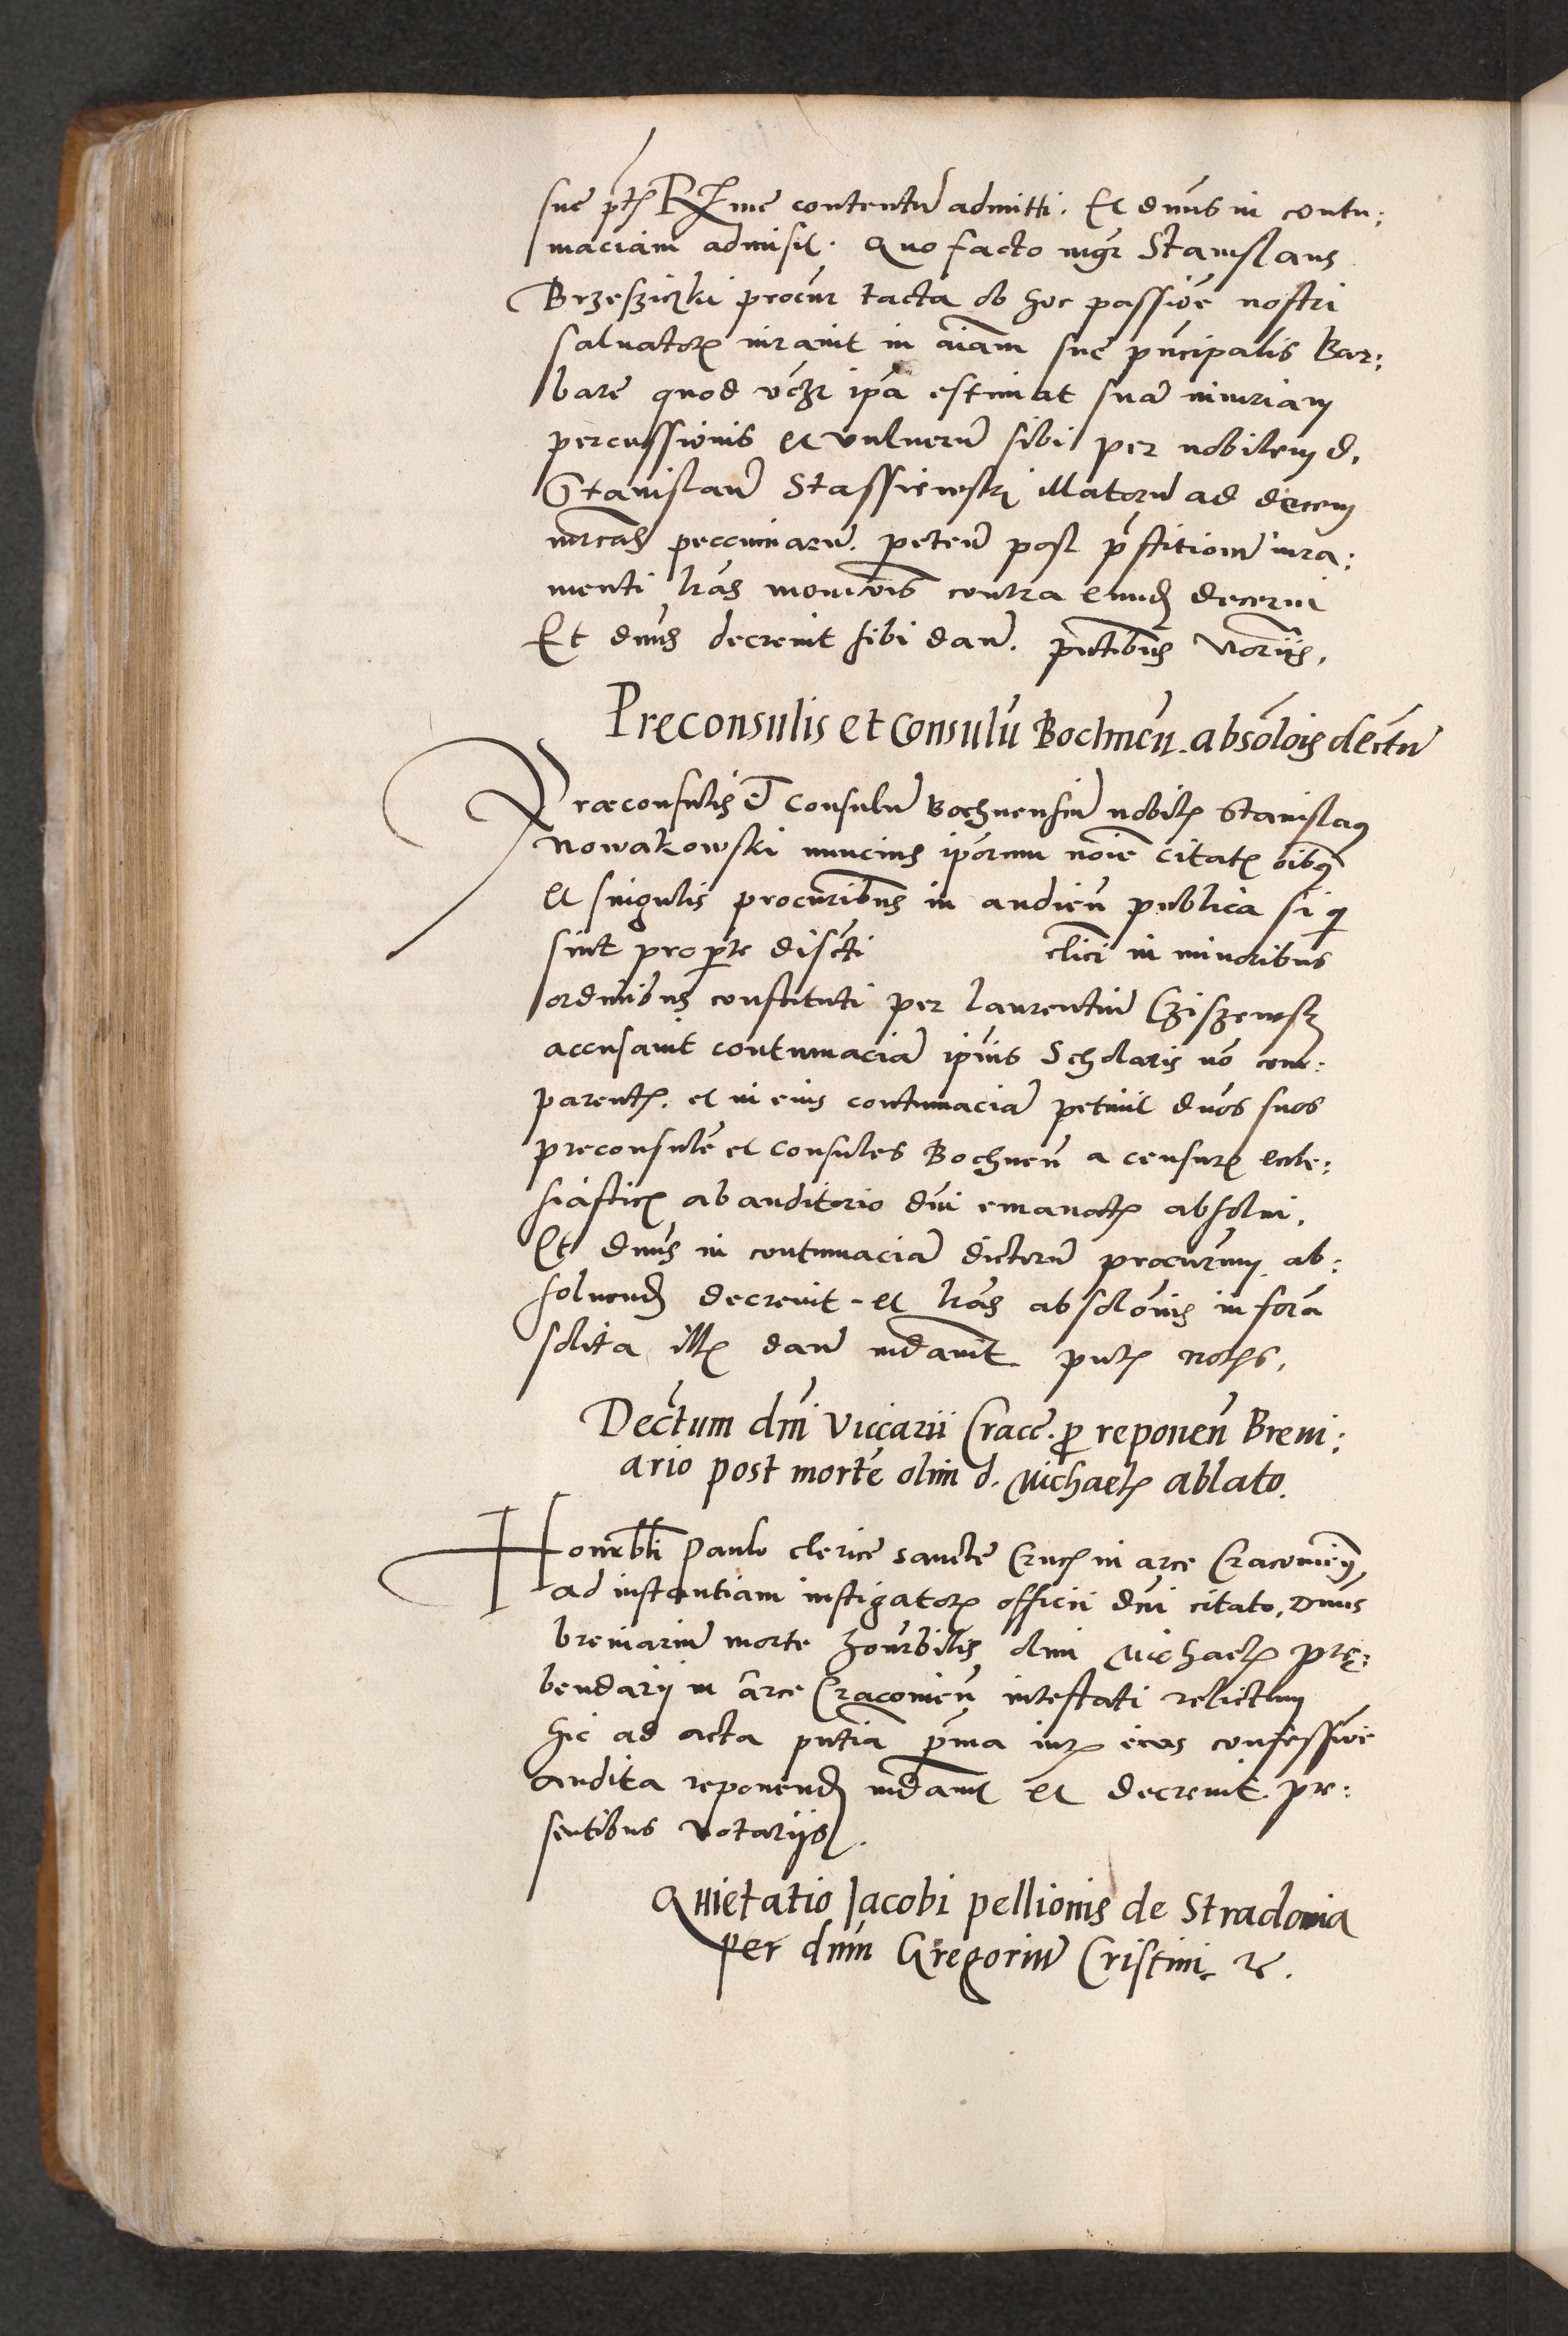 sue ptis Rxme contentū admitti. Et dnus in contu:
maciam admisit. Quo facto mgr Stanislaus
Brzesziczki procur tacta ob hoc passiõe nostri
saluatoris iurauit in aiam sue pncipalis Bar:
bare quod ipa estimat suã iniuriam
percussionis et vulnerũ sibi per nobilem d.
Stanislaũ Stassiewski illatorũ ad decem
mrcas peccuniarũ. petens post pstitionẽ iura:
menti lras monitõis contra eundẽ decerni
Et dnus decreuit sibi dari. pntibus notariis.
Preconsulis et Consulũ Bochneñ. absolõis dectũ
Præconsulis et Consulũ Bochnensiũ nobilis Stanislaus
Nowakowski nuncius ipõrum noĩe citatis oĩbus
et singulis procuratoribus in audien publica si q
sint pro pte discti clĩci in minoribus
ordinibus constituti per laurentiũ Cziszewsk
accusauit contumaciã ipius Scholaris nõ com:
parentis. et in eius contumaciã petiuit dnos suos
preconsulẽ et Consules Bochneñ a censuris eccle:
siasticis ab auditorio dni emanatis absolui.
Et dnus in contumaciã dictorũ procurum ab:
soluendos decreuit et lras absolõnis in forã
solita illis dari mdauit pntis notris.
Dectum dni Viccarii Cracc. p reponeñ Breui:
ario post mortẽ olim d. Michaelis ablato.
Honrbli Paulo clerice sancte Crucis in arce Cracouień
ad instantiam instigatoris officii dni citato, Dnus
breuiariũ morte honrbilis olim Michaelis prę:
bendarij in arce Cracouień intestati relictum
hic ad acta pntia confessiõe
audita reponendũ mdauit et decreuit. pre:
sentibus notarijs.
Quietatio Jacobi pellionis de Stradomia
per dnm Gregoriũ Cristini &c.